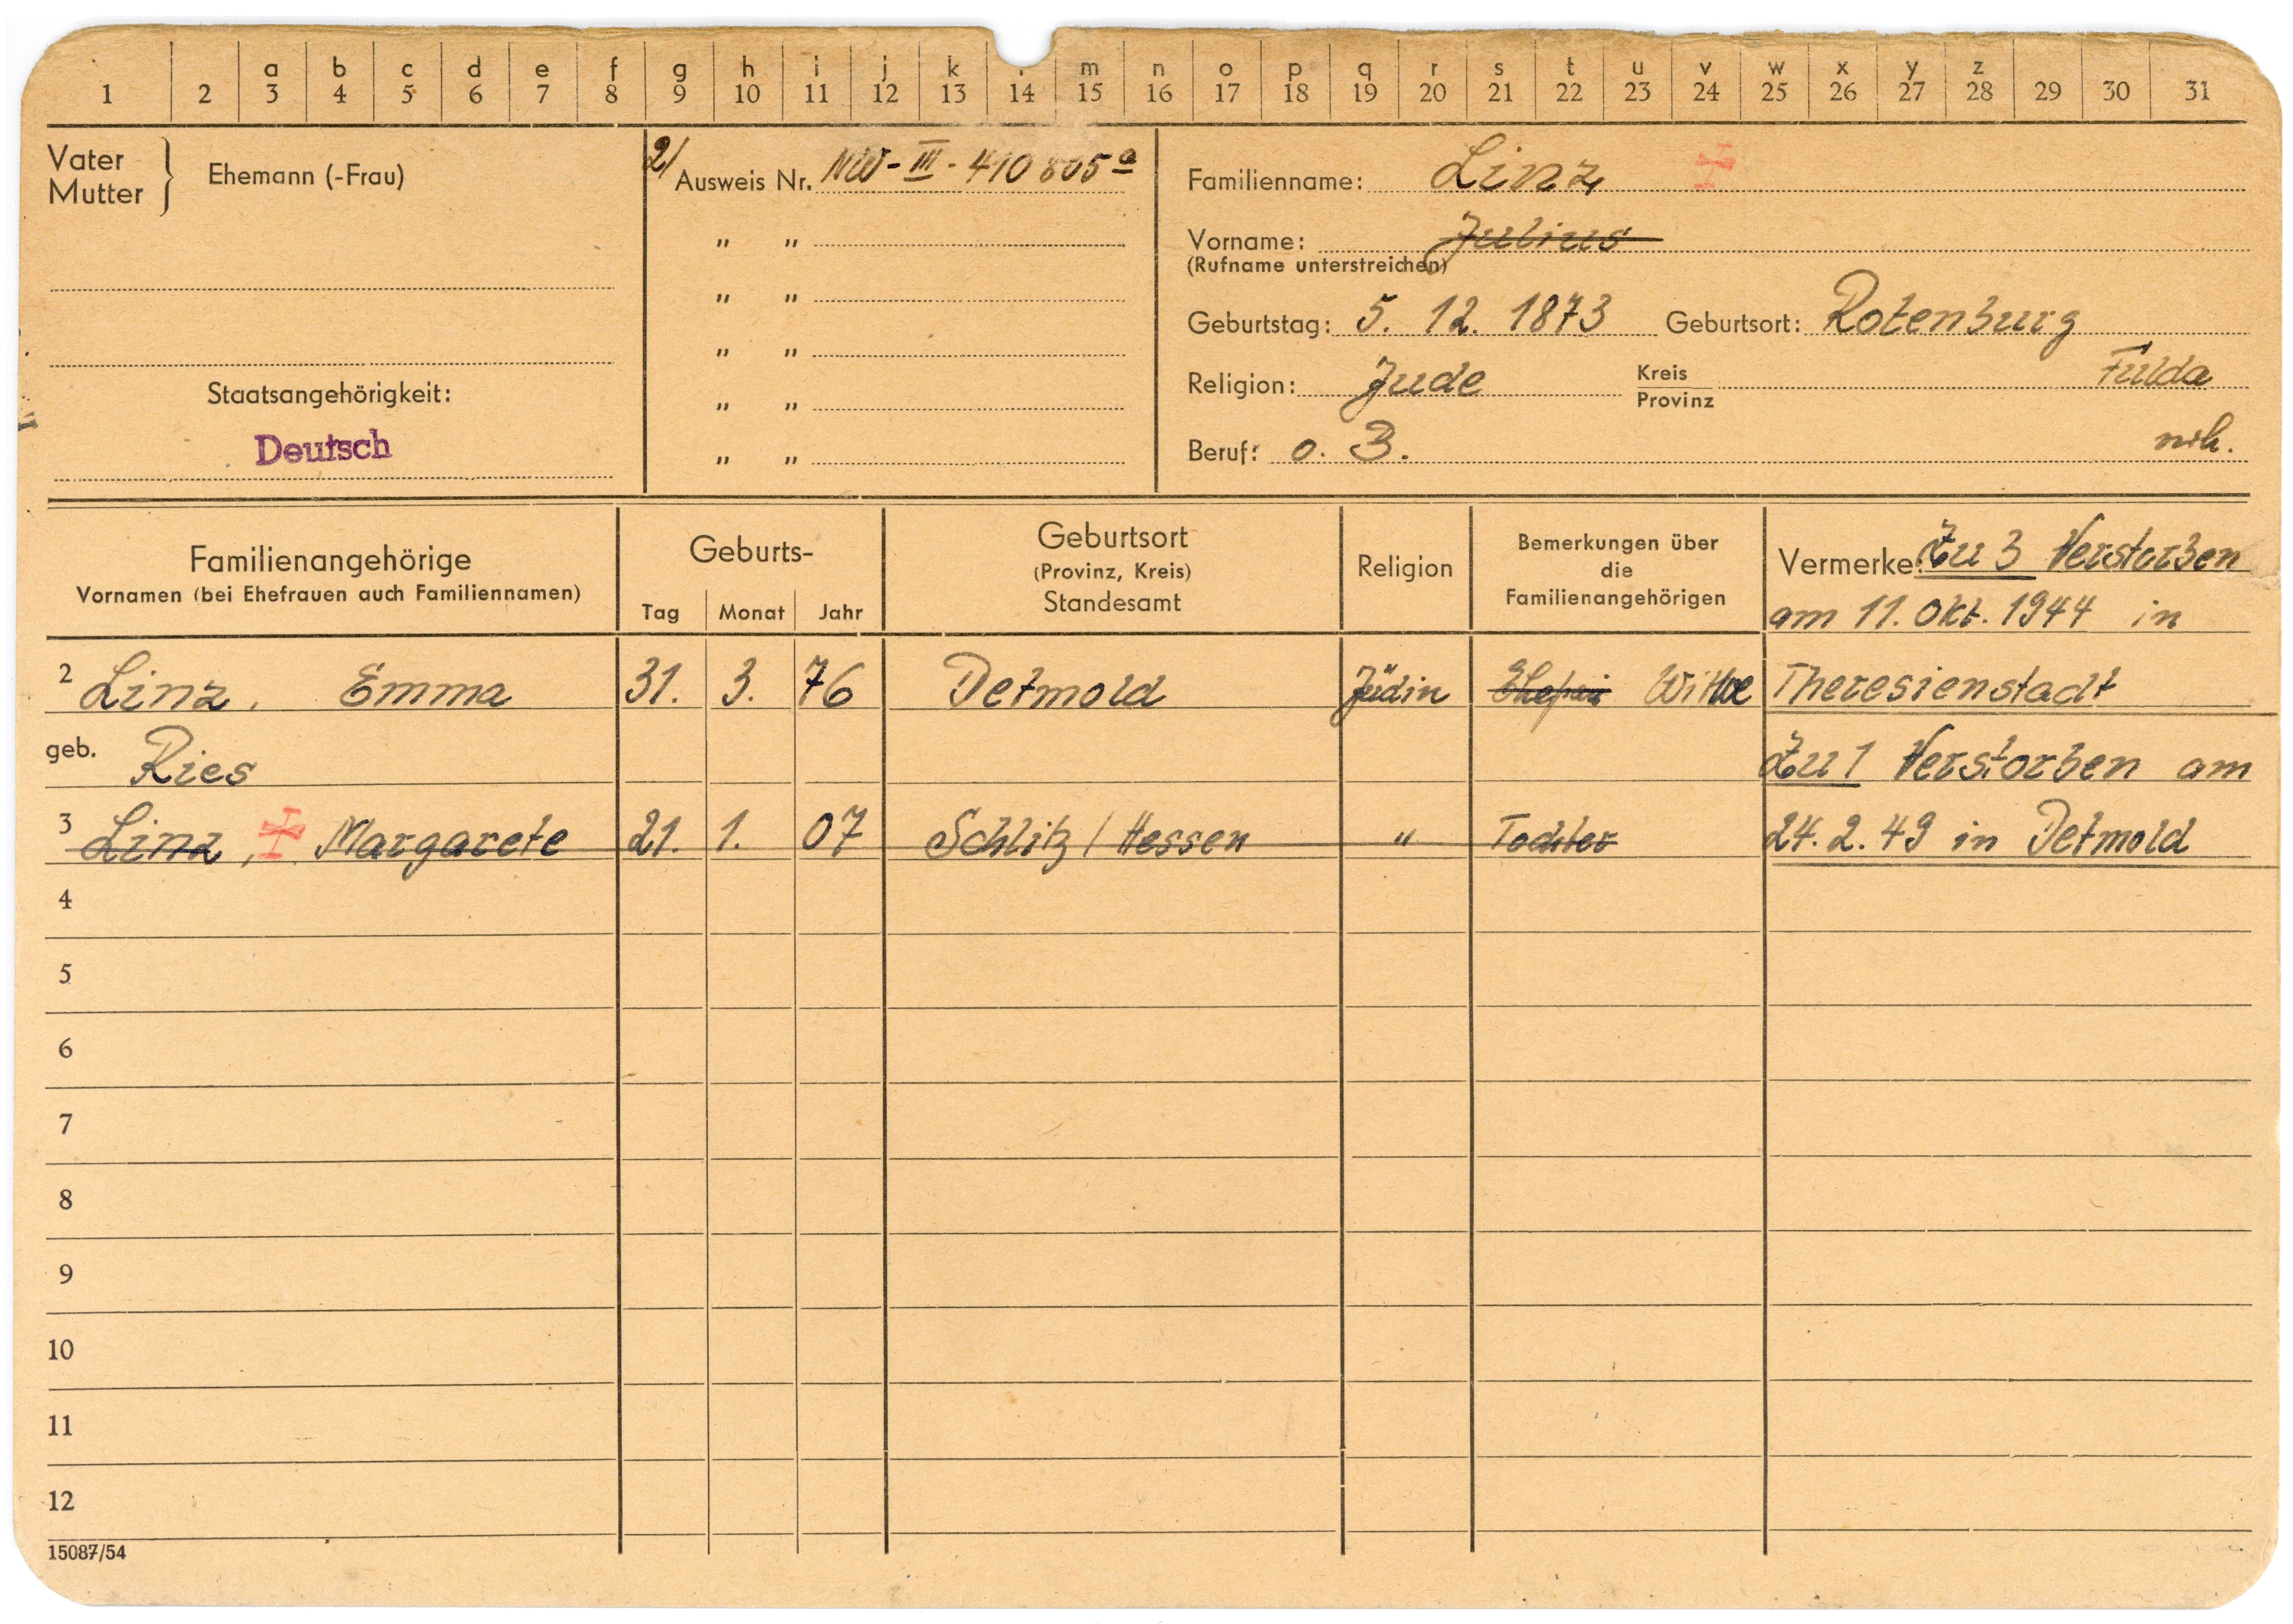 a b c d e f g h i j k m n o p q r s t u v w x y z
1 2 3 4 5 6 7 8 9 10 11 12 13 14 15 16 17 18 19 20 21 22 23 24 25 26 27 28 29 30 31
Vater
Mutter } Ehemann (-Frau)
Staatsangehörigkeit:
Deutsch
2/ Ausweis Nr. NW-III-410805a
" "
" "
" "
" "
" "
Familienname: Linz
Vorname: Julius
(Rufname unterstreichen)
Geburtstag: 5. 12. 1873 Geburtsort: Rotenburg
Religion: Jude Kreis Provinz Fulda
Beruf: o. B.
Familienangehörige
Vornamen (bei Ehefrauen auch Familiennamen)
Geburts-
Tag Monat Jahr
Geburtsort
(Provinz, Kreis)
Standesamt
Religion
Bemerkungen über
die
Familienangehörigen
Vermerke: Zu 3 Verstorben
am 11. Okt. 1944 in
2 Linz, Emma 31. 3. 76 Detmold Jüdin Ehefrau Witwe Theresienstadt
geb. Ries Zu 1 Verstorben am
3 Linz, Margarete 21. 1. 07 Schlitz / Hessen " Tochter 24. 2. 49 in Detmold
4
5
6
7
8
9
10
11
12
15087/54